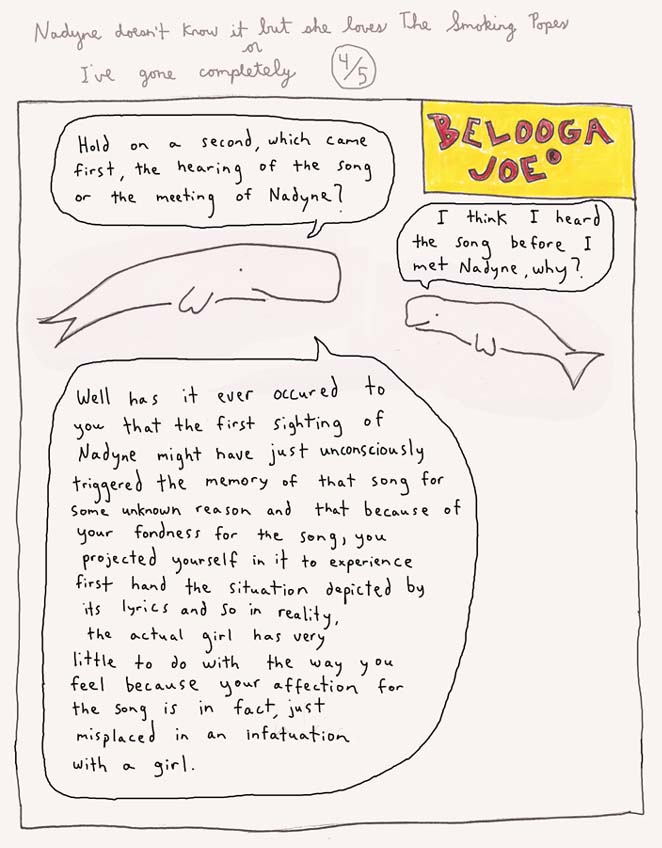 Nadyne doesn't know it but she loves The Smoking Popes
or
I've gone completely 4/5
BELOOGA
JOE®
Hold on a second, which came
first, the hearing of the song
or the meeting of Nadyne?
I think I heard
the song before I
met Nadyne, why?
Well has it ever occured to
you that the first sighting of
Nadyne might have just unconsciously
triggered the memory of that song for
some unknown reason and that because of
your fondness for the song, you
projected yourself in it to experience
first hand the situation depicted by
its lyrics and so in reality,
the actual girl has very
little to do with the way you
feel because your affection for
the song is in fact, just
misplaced in an infatuation
with a girl.